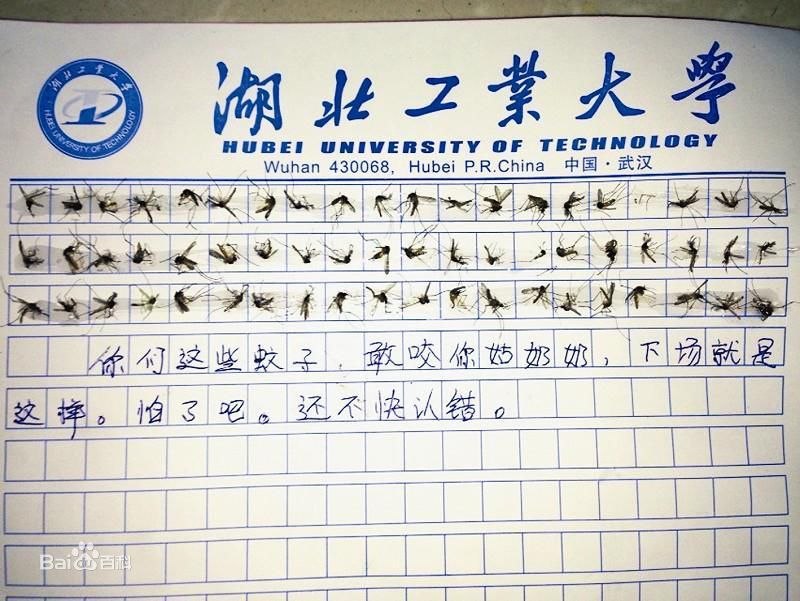 湖北工业大学
HUBEI UNIVERSITY OF TECHNOLOGY
湖北工業大學
HUBEI UNIVERSITY OF TECHNOLOGY
Wuhan 430068, Hubei P.R.China 中国·武汉
你们这些蚊子，敢咬你姑奶奶，下场就是
这样。怕了吧。还不快认错。
Baidu百科